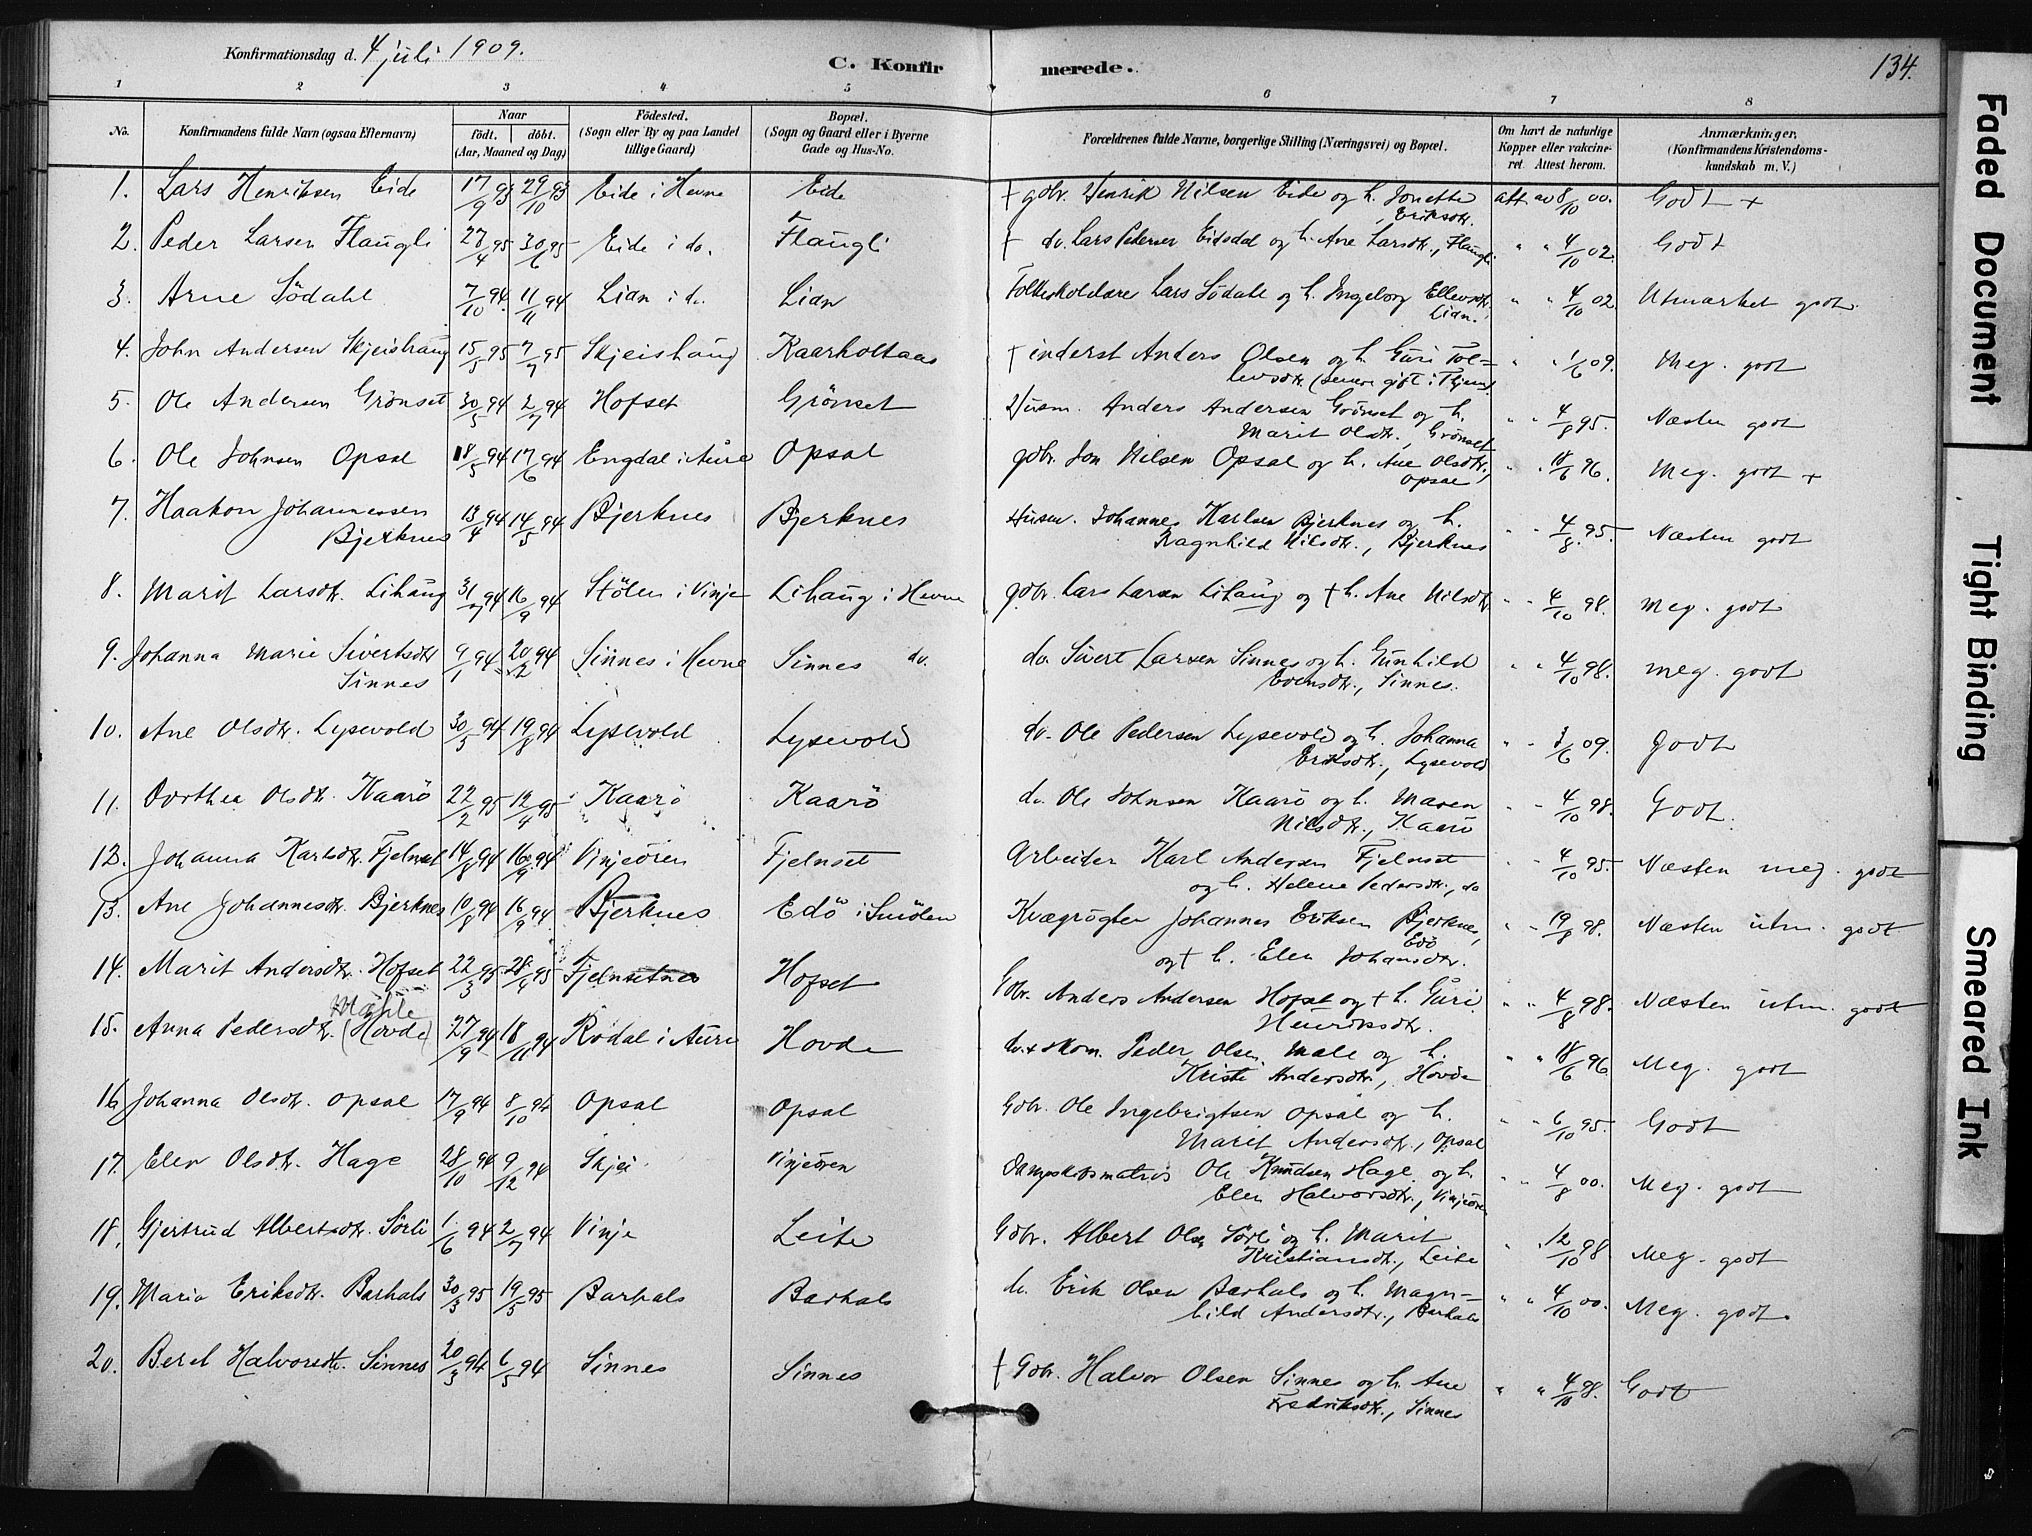 Konfirmationsdag d. 4 juli 1909.
C. Konfirmerede.
134.
1 2 3 4 5 6 7 8
No.
Konfirmandens fulde Navn (ogsaa Efternavn)
Naar
födt. döbt.
(Aar, Maaned og Dag)
Födested.
(Sogn eller By og paa Landet
tillige Gaard)
Bopæl.
(Sogn og Gaard eller i Byerne
Gade og Hus-No.
Forældrenes fulde Navne, borgerlige Stilling (Næringsvei) og Bopæl.
Om havt de naturlige
Kopper eller vakcine-
ret. Attest herom.
Anmærkninger,
(Konfirmandens Kristendoms-
kundskab m. V.)
1. Lars Henriksen Eide 17/9 93 29/10 93 Eide i Hevne Eide + gdbr. Henrik Nilsen Eide og h. Jonette att av 8/10 00. Godt +
Eriksdtr.
2. Peder Larsen Flaugli 27/4 95 30/6 95 Eide i do. Flaugli + do. Lars Pedersen Eidsdal og h. Ane Larsdtr., Flaugli " " 4/10 02. Godt
3. Arne Södahl 7/10 94. 11/11 94 Lian i do. Lian Folkeskolelærer Lars Södahl og h. Ingeborg Ellevsdtr. " " 4/10 02 Utmærket godt.
Lian.
4. John Andersen Skjeishaug 15/5 95 7/7 95 Skjeishaug Kaarholtaas + inderst Anders Olsen og h. Guri Tol- " " 1/6 09. Meg. godt
levsdtr. (senere gift i
5. Ole Andersen Grönset 30/5 94 2/7 94 Hofset Grönset Husm. Anders Andersen Grönset og h. " " 4/8 95. Næsten godt
Marit Olsdtr., Grönset
6. Ole Johnsen Opsal 18/5 94 17/6 94 Engdal i Aure Opsal gdbr. Jon Nilsen Opsal og h. Ane Olsdtr., " " 18/6 96. Meg. godt +
Opsal
7. Haakon Johannessen 13/4 94 14/5 94 Bjerknes Bjerknes Husm. Johannes Karlsen Bjerknes og h. " " 4/8 95. Næsten godt
Bjerknes Ragnhild Nilsdtr., Bjerknes
8. Marit Larsdtr. Lihaug 31/7 94 16/9 94 Stölen i Vinje Lihaug i Hevne gdbr. Lars Larsen Lihaug og + h. Ane Nilsdtr. " " 4/10 98. Meg. godt
9. Johanna Marie Sivertsdtr 9/1 94 20/2 94 Sinnes i Hevne Sinnes do. do. Sivert Larsen Sinnes og h. Gunhild " " 4/10 98. meg. godt
Sinnes Evensdtr., Sinnes.
10. Ane Olsdtr. Lysevold 30/5 94 19/8 94 Lysevold Lysevold do. Ole Pedersen Lysevold og h. Johanna " " 3/6 09. Godt
Eriksdtr., Lysevold
11. Dorthea Olsdtr. Kaarö 22/2 95 12/4 95 Kaarö Kaarö do. Ole Johnsen Kaarö og h. Maren " " 4/10 98. Godt.
Nilsdtr., Kaarö
12. Johanna Karlsdtr. Fjelnset 14/8 94 16/9 94 Vinjeören Fjelnset Arbeider Karl Andersen Fjelnset " " 4/10 95. Næsten meg. godt
og h. Helene Pedersdtr., do
13. Ane Johannesdtr. Bjerknes 10/8 94 16/9 94. Bjerknes Edö i Smölen Kvægrögter Johannes Eriksen Bjerknes, " " 19/8 98. Næsten utm. godt
Edö
og + h. Elen Johansdtr.
14. Marit Andersdtr. Hofset 22/3 95 28/4 95 Fjelnsetnes Hofset Gdbr. Anders Andersen Hofset og + h. Guri " " 4/8 98. Næsten utm. godt
Henriksdtr.
15. Anna Pedersdtr. (Hovde) 27/9 94 18/11 94 Rodal i Aure Hovde do. + skom. Peder Olsen Male og h. " " 18/6 96. Meg. godt
Kristi Andersdtr., Hovde
16. Johanna Olsdtr. Opsal 17/9 94 8/10 94 Opsal Opsal Gdbr. Ole Ingebrigtsen Opsal og h. " " 6/10 95. Godt
Marit Andersdtr., Opsal
17. Elen Olsdtr. Hage 28/10 94 9/12 94 Skjei Vinjeören Dampskibsmatros Ole Knudsen Hage og h. " " 4/8 00. Meg. godt
Elen Halvorsdtr., Vinjeören
18. Gjertrud Albertsdtr. Sörli 1/6 94 2/7 94 Vinje Leite Gdbr. Albert Olsen Sörli og h. Marit " " 12/10 98. Meg. godt
Kristiansdtr., Leite
19. Maria Eriksdtr. Barhals 30/3 95 19/5 95 Barhals Barhals do. Erik Olsen Barhals og h. Magn- " " 4/10 00. Meg. godt.
hild Andersdtr., Barhals
20. Beret Halvorsdtr. Sinnes 20/3 94 6/5 94 Sinnes Sinnes + Gdbr. Halvor Olsen Sinnes og h. Ane " " 4/10 98. Godt
Fredriksdtr., Sinnes
Faded Document
Tight Binding
Smeared Ink